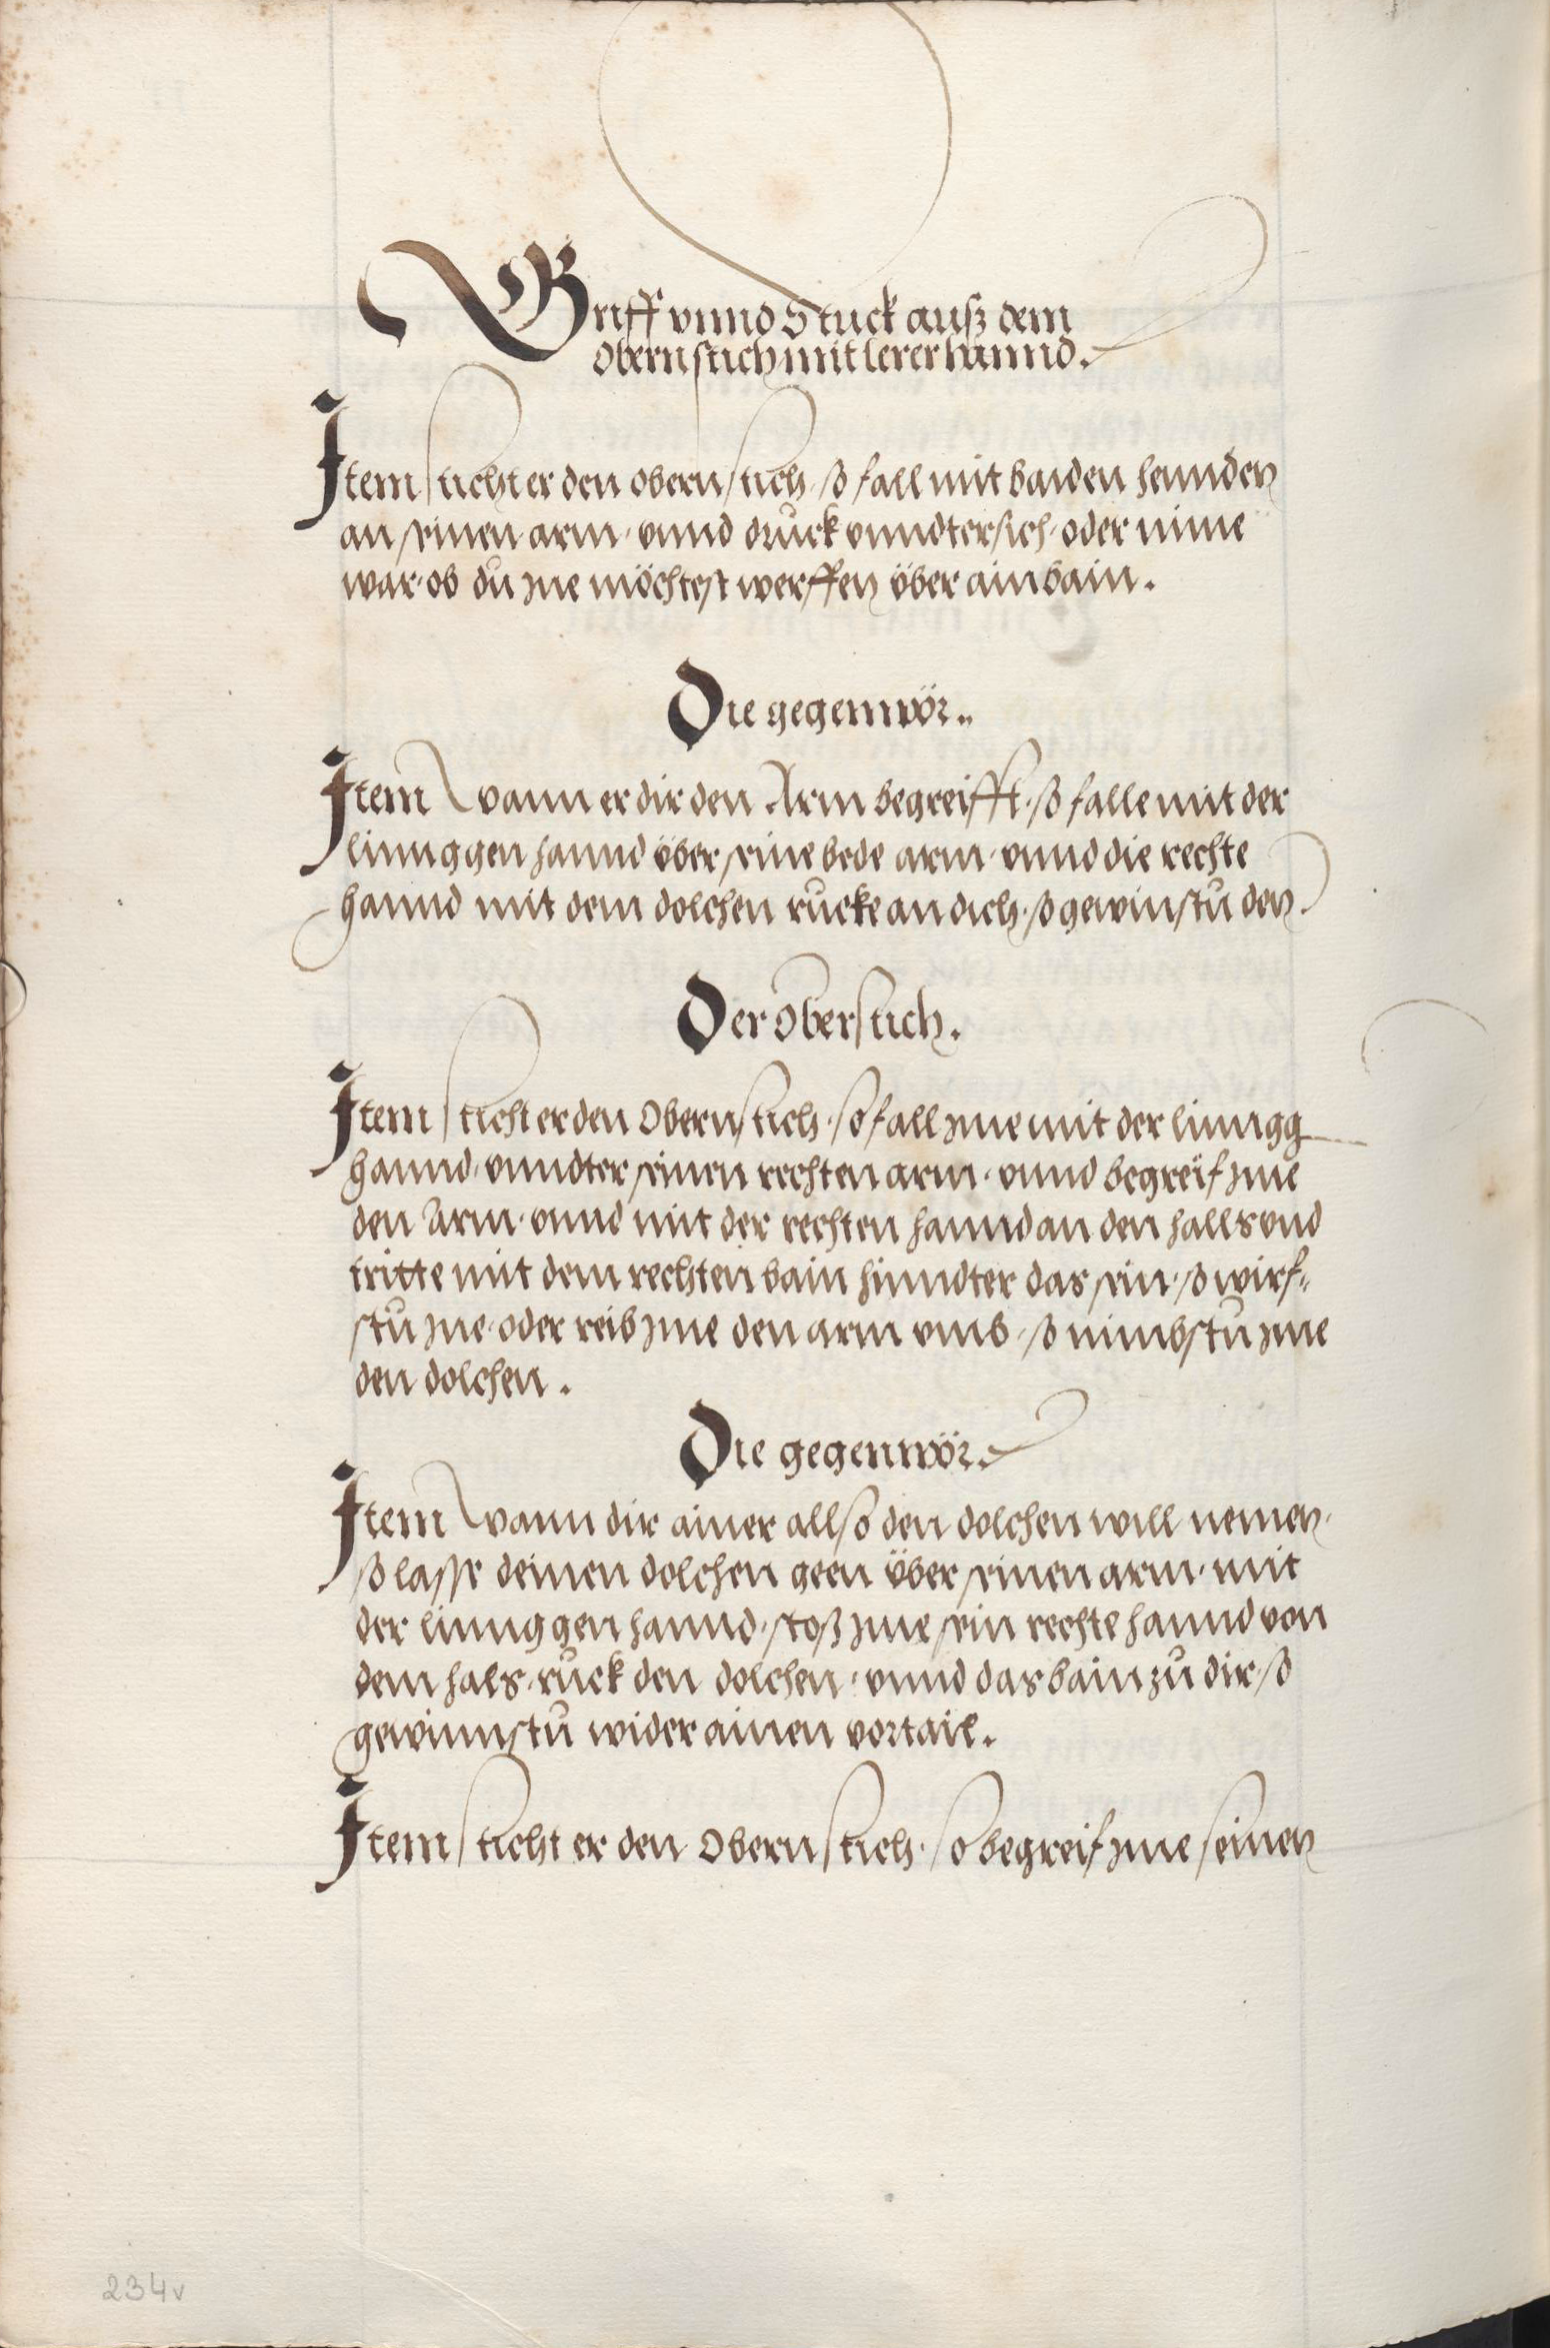 Griff vnnd Stuck auß dem
Obern stich mit lerer hannd.
Item sticht er den obern stich, so fall mit baiden hennden
an seinen arm, vnnd druck vnndtersich, oder nime
war, ob du jne möchtest werffen über ain bain.
Die gegenwör.
Item wann er dir den Arm begreifft, so falle mit der
linnggen hannd über seine bede arm, vnnd die rechte
hannd mit dem dolchen rucke an dich, so gewinstu den.
Der Oberstich.
Item sticht er den Obern stich, so fall jme mit der lingg
hannd, vnndter seinen rechten arm, vnnd begreif jme
den Arm, vnnd mit der rechten hannd an den halls vnd
tritte mit dem rechten bain hinndter das sein, so wirf-
stu jne, oder reib jme den arm vmb, so nimbstu jme
den dolchen.
Die gegenwör.
Item wann dir ainer allso den dolchen will nemen,
so lasse deinen dolchen geen über seinen arm, mit
der linnggen hannd, stoß jme sein rechte hannd von
dem hals, ruck den dolchen, vnnd das bain zu dir, so
gewinnstu wider ainen vortail.
Item sticht er den Obern stich, so begreif jme seinen
234v